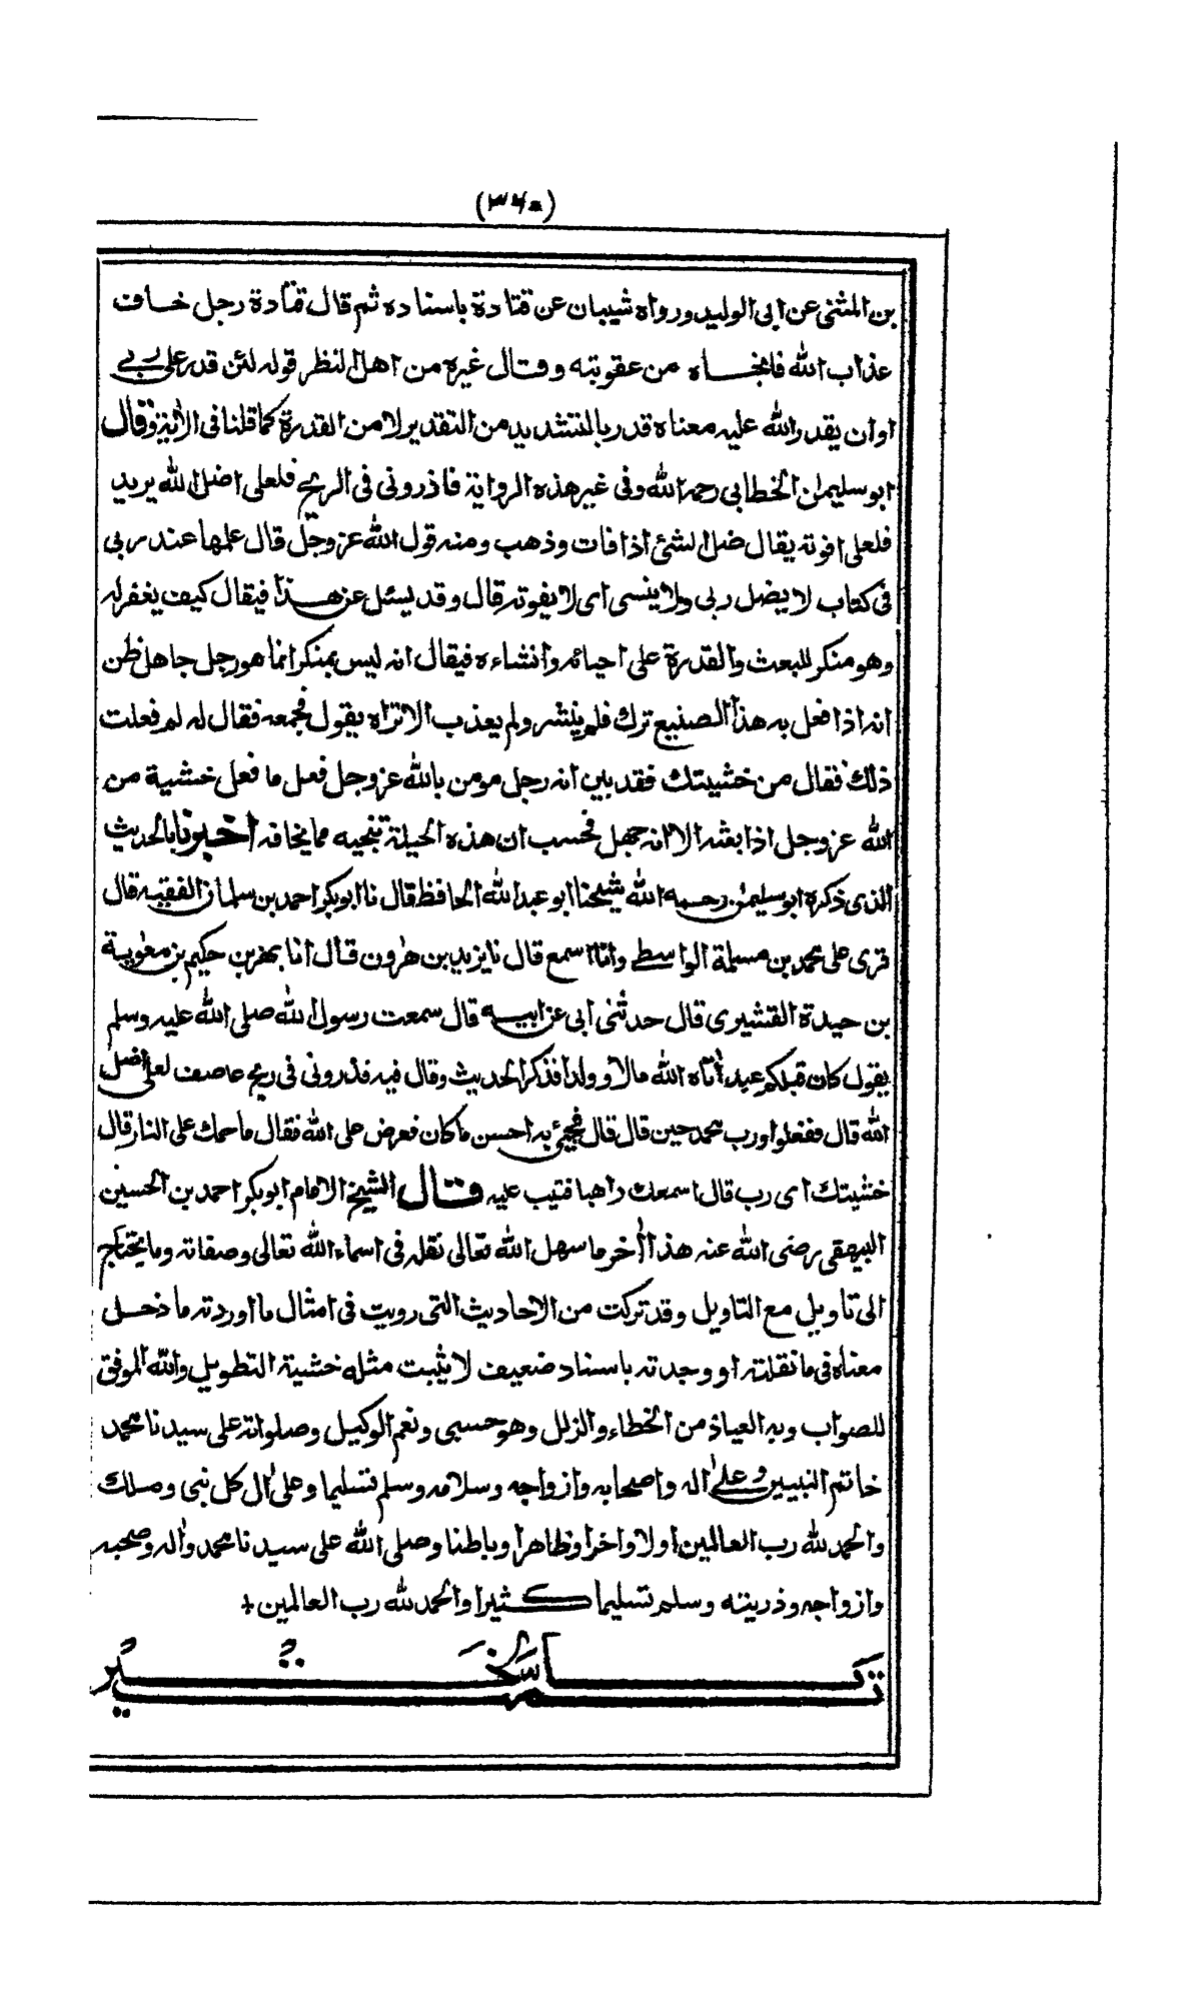 (٣٦٠)
بن المثنى عن ابى الوليد ورواه شيبان عن قتادة باسناده ثم قال قتادة رجل خاف
عذاب الله فانجاه من عقوبته وقال غيره من اهل النظر قوله لئن قدر على ربي
او ان يقدر الله عليه معناه قدر بالتشديد من التقدير لا من القدرة كما قلنا فى الآية وقال
ابو سليمٰن الخطابي رحمه الله وفى غير هذه الرواية فاذرونى فى الريح فلعلى اضل الله يريد
فلعلى افوته يقال ضل الشئ اذا فات وذهب ومنه قول الله عز وجلّ قال علمها عند ربى
فى كتاب لا يضل ربى ولا ينسى اى لا يفوته قال وقد يسئل عن هذا فيقال كيف يغفر له
وهو منكر للبعث والقدرة على احيائه وانشاءه فيقال انه ليس بمنكر انما هو رجل جاهل ظن
انه اذا فعل به هذا الصنيع ترك فلم ينشر ولم يعذب الا تراه يقول فجمعه فقال له لم فعلت
ذلك فقال من خشيتك فقد بين انه رجل مومن بالله عز وجل فعل ما فعل خشية من
الله عز وجل اذا بعثه الا انه جهل فحسب ان هذه الحيلة تنجيه مما يخافه اخبرنا بالحديث
الذى ذكره ابو سليمٰن رحمه الله شيخنا ابو عبد الله الحافظ قال نا ابو بكر احمد بن سلمان الفقيه قال
قرى على محمد بن مسلمة الواسطي وانا اسمع قال نا يزيد بن هٰرون قال انا بهز بن حكيم بن معٰوية
بن حيدة القشيرى قال حدثنى ابى عن ابيه قال سمعت رسول الله صلى الله عليه وسلم
يقول كان قبلكم عبد اٰتاه الله مالا وولدا فذكر الحديث وقال فيه فذرونى فى ريح عاصف لعلى اضل
الله قال ففعلوا ورب محمد حين قال قال فجيئ به احسن ما كان فعرض على الله فقال ما حملك على النار قال
خشيتك اى رب قال اسمعك راهبا فتيب عليه قال الشيخ الامام ابو بكر احمد بن الحسين
البيهقى رضى الله عنه هذا اٰخر ما سهل الله تعالى نقله فى اسماء الله تعالى وصفاته وما يحتاج
الى تاويل مع التاويل وقد تركت من الاحاديث التى رويت فى امثال ما اوردته ما دخل
معناه فى ما نقلته او وجدته باسناد ضعيف لا يثبت مثله خشية التطويل والله الموفق
للصواب وبه العياذ من الخطاء والزلل وهو حسبى ونعم الوكيل وصلواته على سيدنا محمد
خاتم النبيين وعلى اٰله واصحابه وازواجه وسلامه وسلم تسليما وعلى اٰل كل نبى وملك
والحمد لله رب العالمين اولا واخرا وظاهرا وباطنا وصلى الله على سيدنا محمد واٰله وصحبه
وازواجه وذريته وسلم تسليما كثيرا والحمد لله رب العالمين